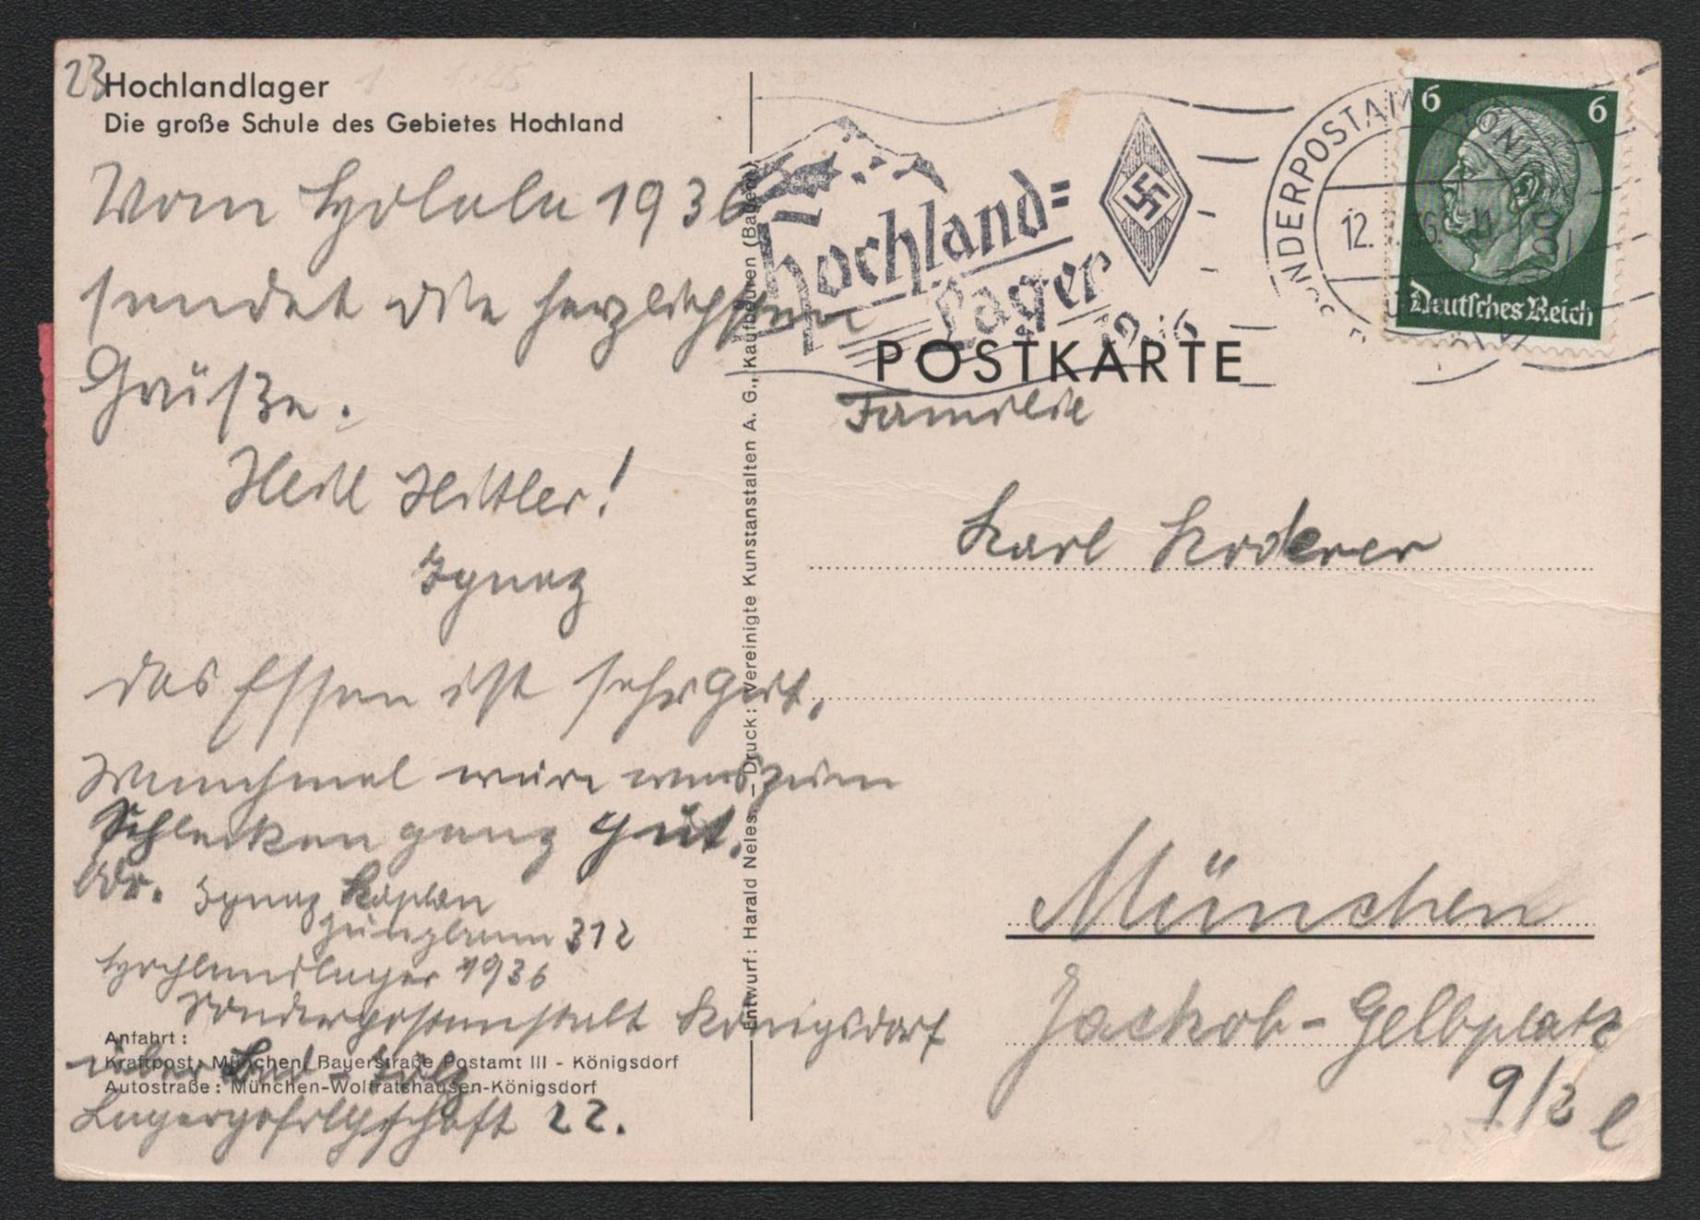 23
Hochlandlager
Die große Schule des Gebietes Hochland
Vom Holala 1936
sendet die herzlichsten
Grüße.
Heil Hittler!
Ignaz
das Essen ist sehr gut.
Manchmal wäre was zum
Schlecken ganz gut.
Adr. Ignaz Kaplan
Jungbann 312
Hochlandlager 1936
Sonderpostanstalt Königsdorf
über Bad-Tölz
Lagergefolgschaft 22.
Anfahrt:
Kraftpost: München, Bayerstraße Postamt III - Königsdorf
Autostraße: München-Wolfratshausen-Königsdorf
Entwurf: Harald Neles. – Druck: Vereinigte Kunstanstalten A. G., Kaufbeuren (Bayern)
Hochland=
Lager
1936
SONDERPOSTAMT
12. 36. 11
6 6
Deutsches Reich
POSTKARTE
Familie
Karl Koderer
München
Jackob-Gelbplatz
9/3 l